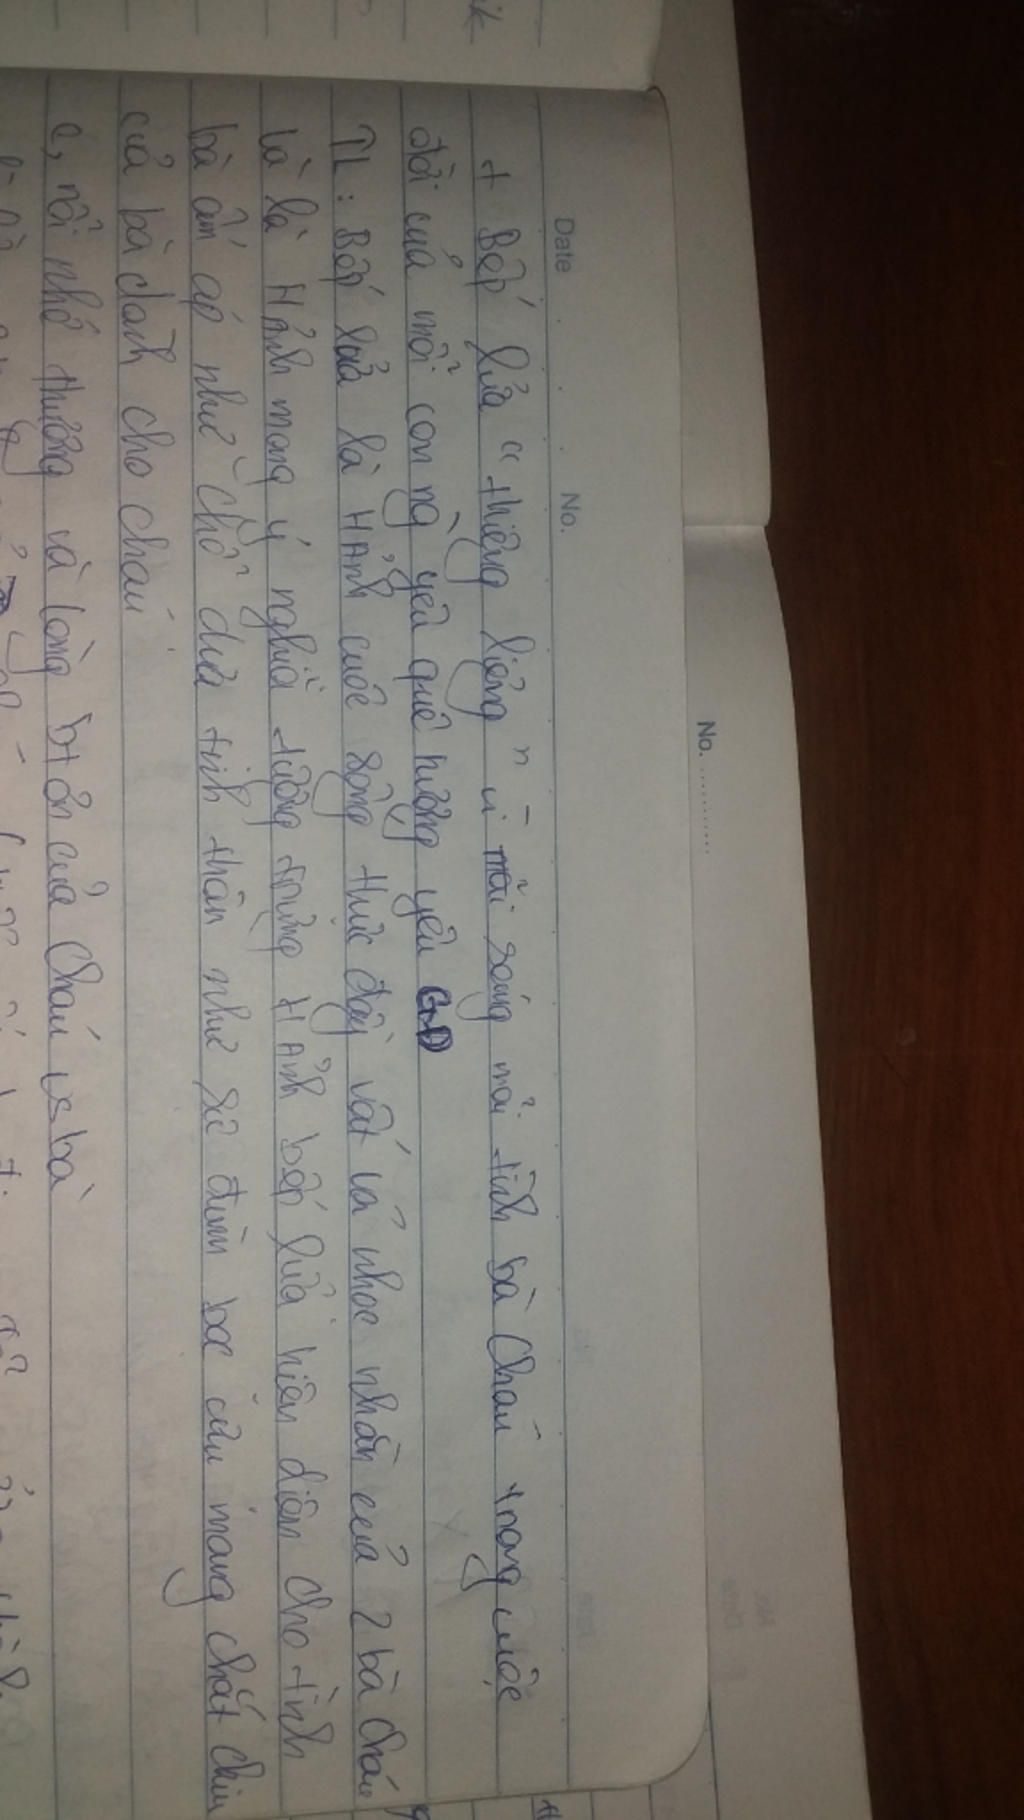 No. ............
Date No.
+ Bếp lửa "thiêng liêng" vì mãi sáng mãi tình bà cháu trong cuộc
đời của mỗi con ng yêu quê hương yêu GĐ
TL: Bếp lửa là H Ảnh cuộc sống thực đầy vất vả nhọc nhằn của 2 bà cháu
là H Ảnh mang ý nghĩa tượng trưng H Ảnh bếp lửa hiện diện cho tình
bà ấm áp như chỗ dựa tinh thần như sự đùm bọc cưu mang chắt chiu
của bà dành cho cháu
c, nỗi nhớ thương và lòng bt ơn của cháu vs bà